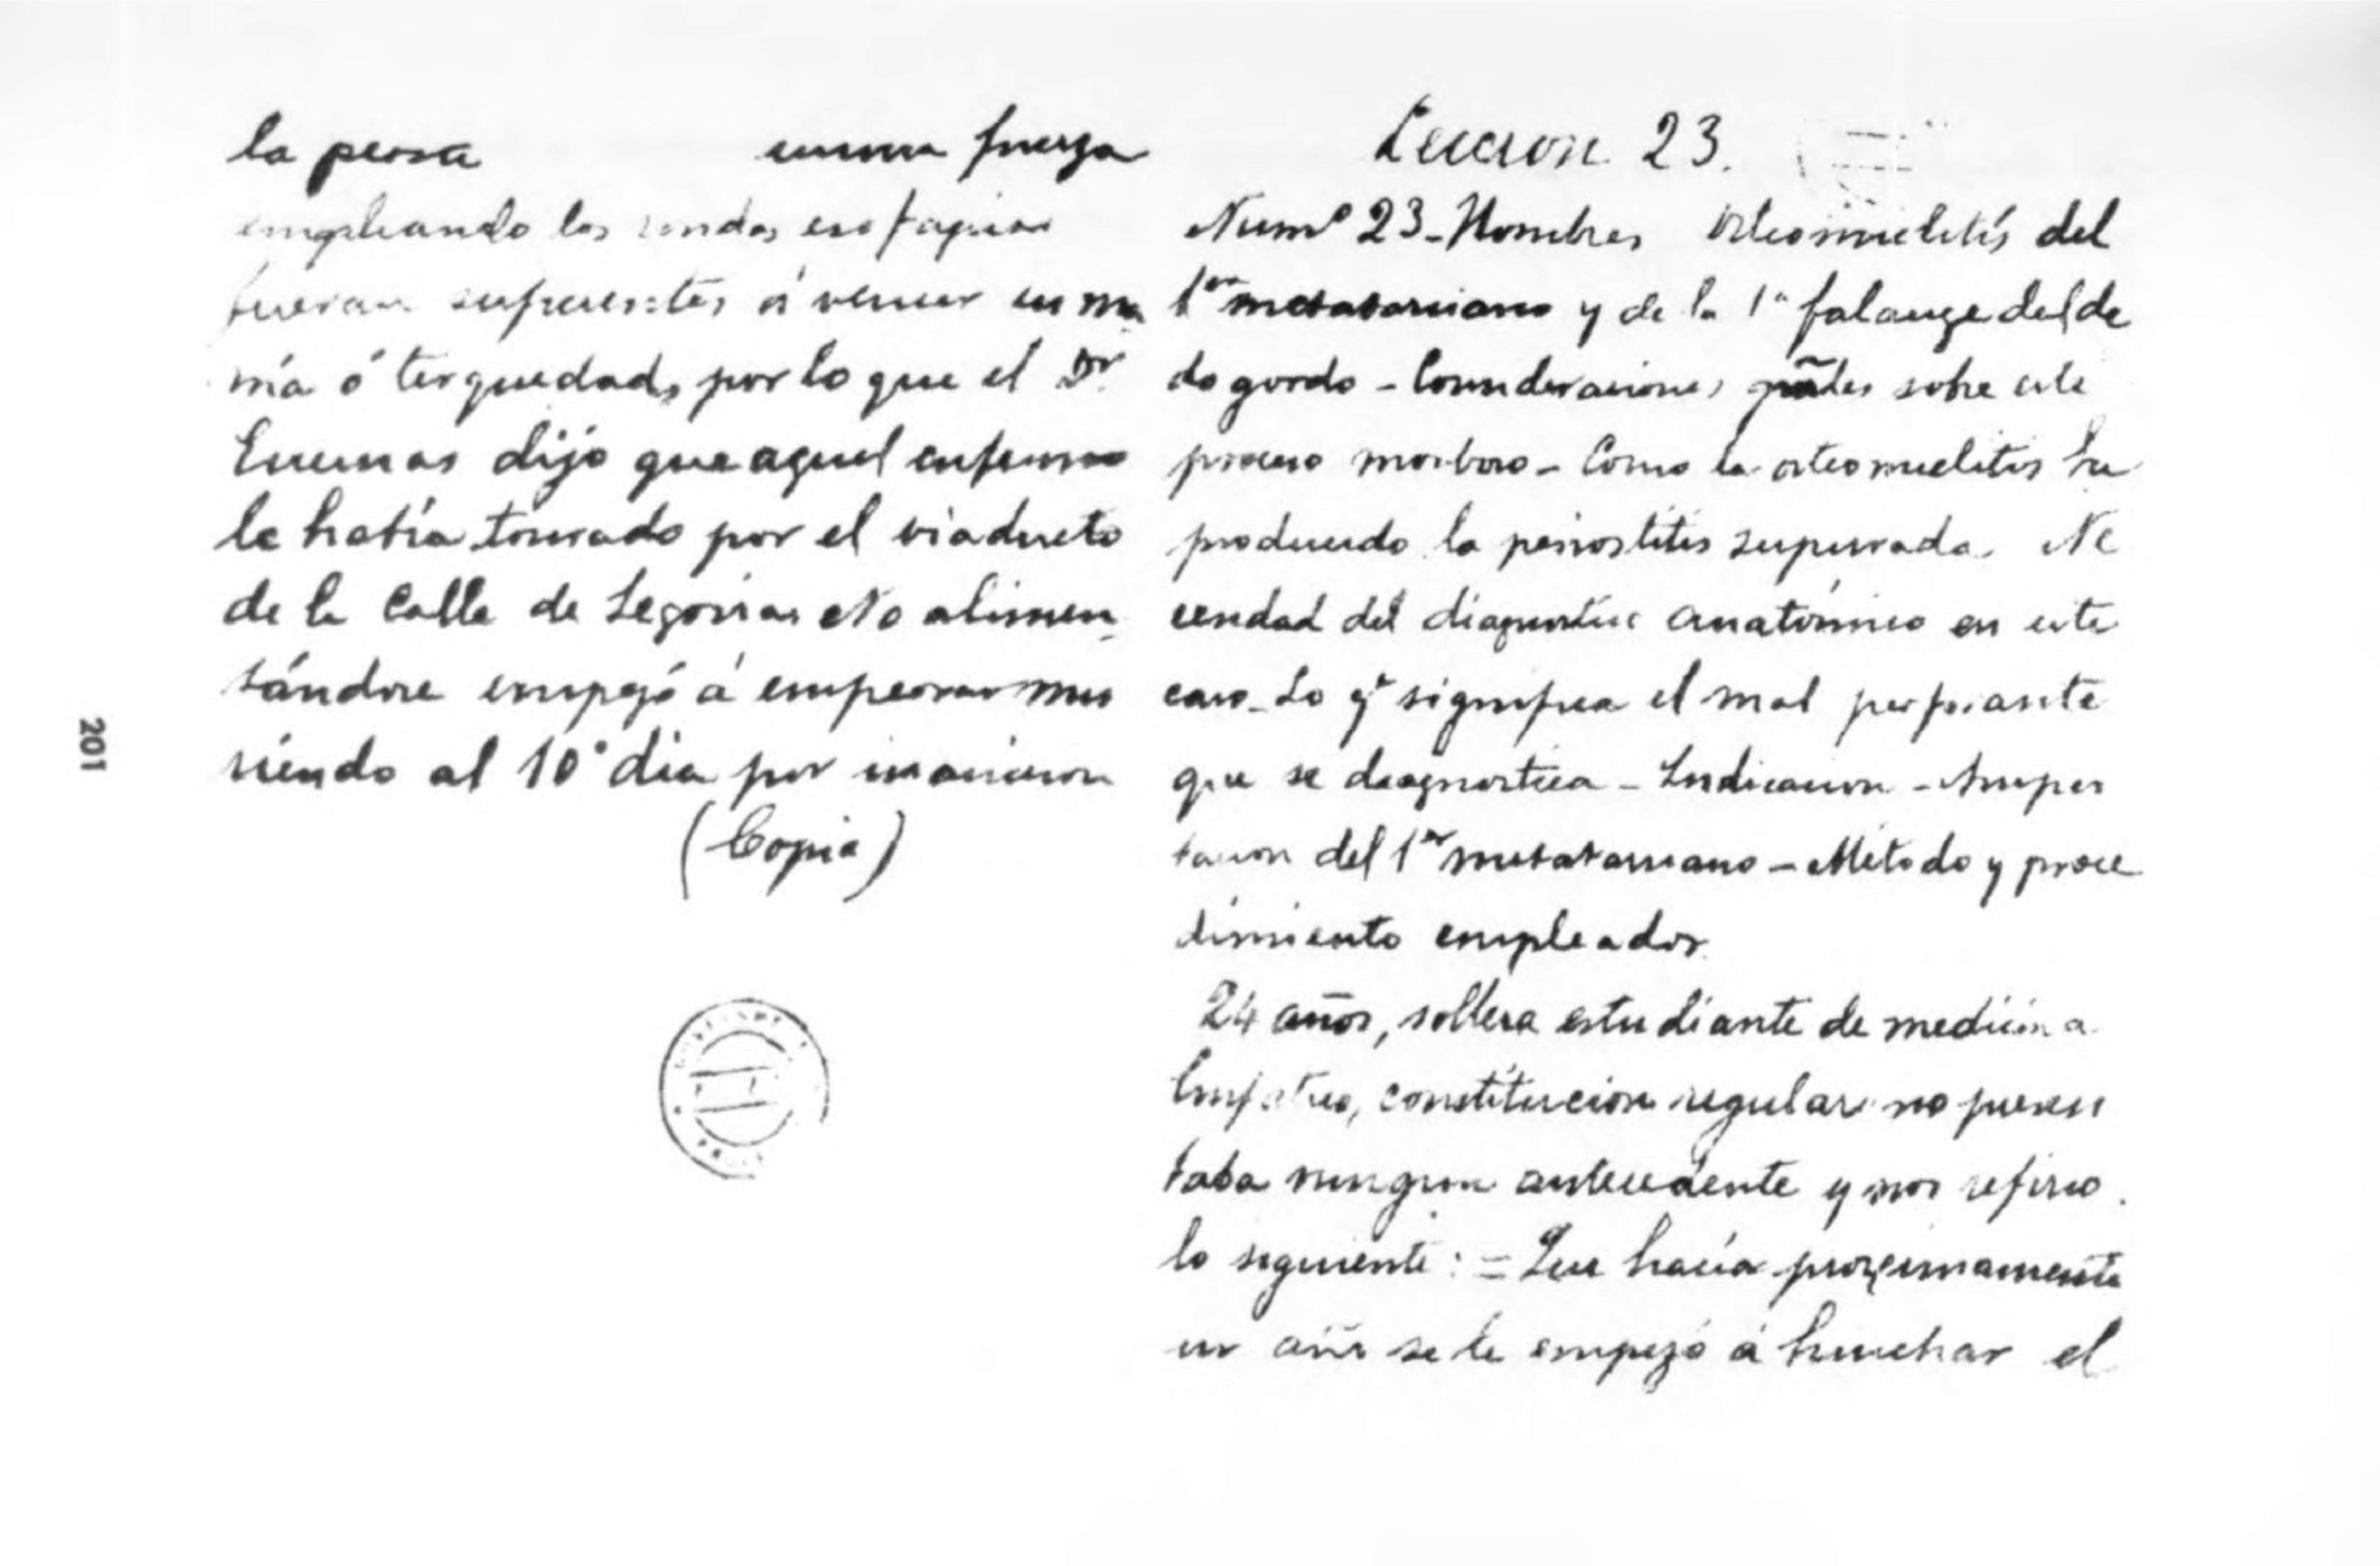 la
fuerza
empleando las sondas esofagicas
fueran suficientes á vencer su ma
nía ó terquedad, por lo que el Dr
Encinas dijo que aquel enfermo
le había tomado por el viaducto
de la Calle de Segovia. No alimen
tándose empezó á empeorar mu
riendo al 10° dia por inanicion
(Copia)
Leccion 23.
Num° 23 - Hombres Osteomielitis del
1er metatarsiano y de la 1ª falange del de
do gordo - Consideraciones grales sobre este
proceso morboso - Como la osteomielitis ha
producido la periostitis supurada. Ne
cesidad del diagnostico anatómico en este
caso - Lo qe significa el mal perforante
que se diagnostica - Indicacion - Ampu
tacion del 1er metatarsiano - Método y proce
dimiento empleados.
24 años, soltero estudiante de medicina
linfatico, constitucion regular no presen
taba ningun antecedente y nos refirió
lo siguiente: = Que hacía proximamente
un año se le empezó á hinchar el
201